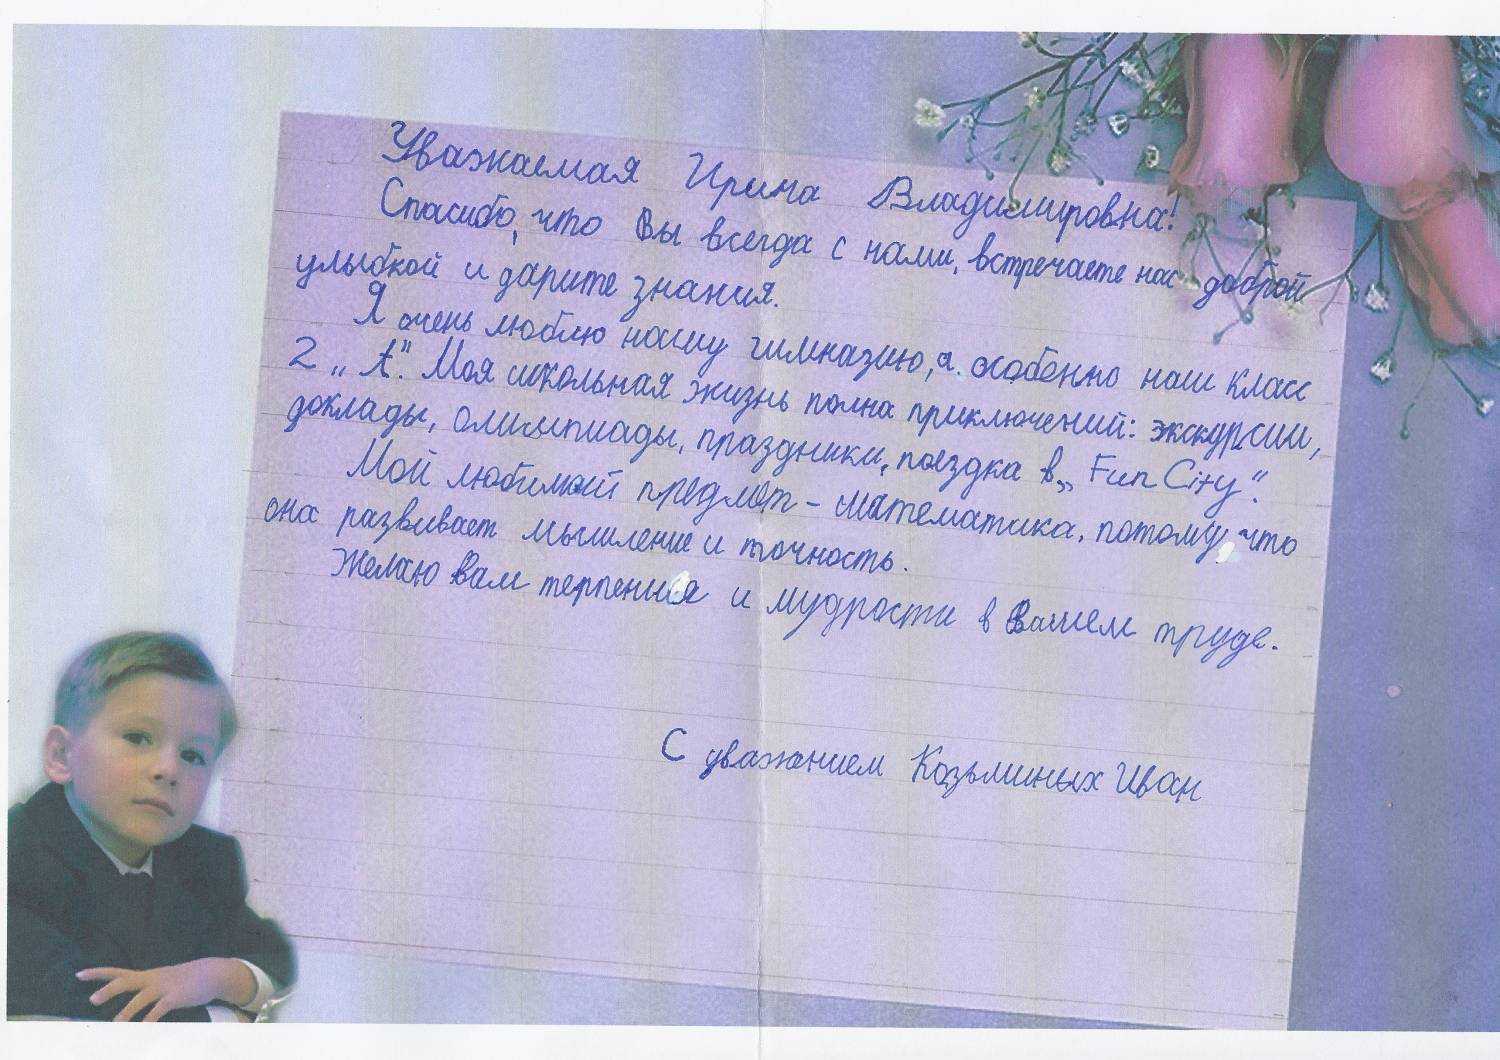 Уважаемая Ирина Владимировна!
Спасибо, что Вы всегда с нами, встречаете нас доброй
улыбкой и дарите знания.
Я очень люблю нашу гимназию, а особенно наш класс
2 „А". Моя школьная жизнь полна приключений: экскурсии,
доклады, олимпиады, праздники, поездка в „Fun City".
Мой любимый предмет – математика, потому что
она развивает мышление и точность.
Желаю Вам терпения и мудрости в Вашем труде.
С уважением Козьминых Иван